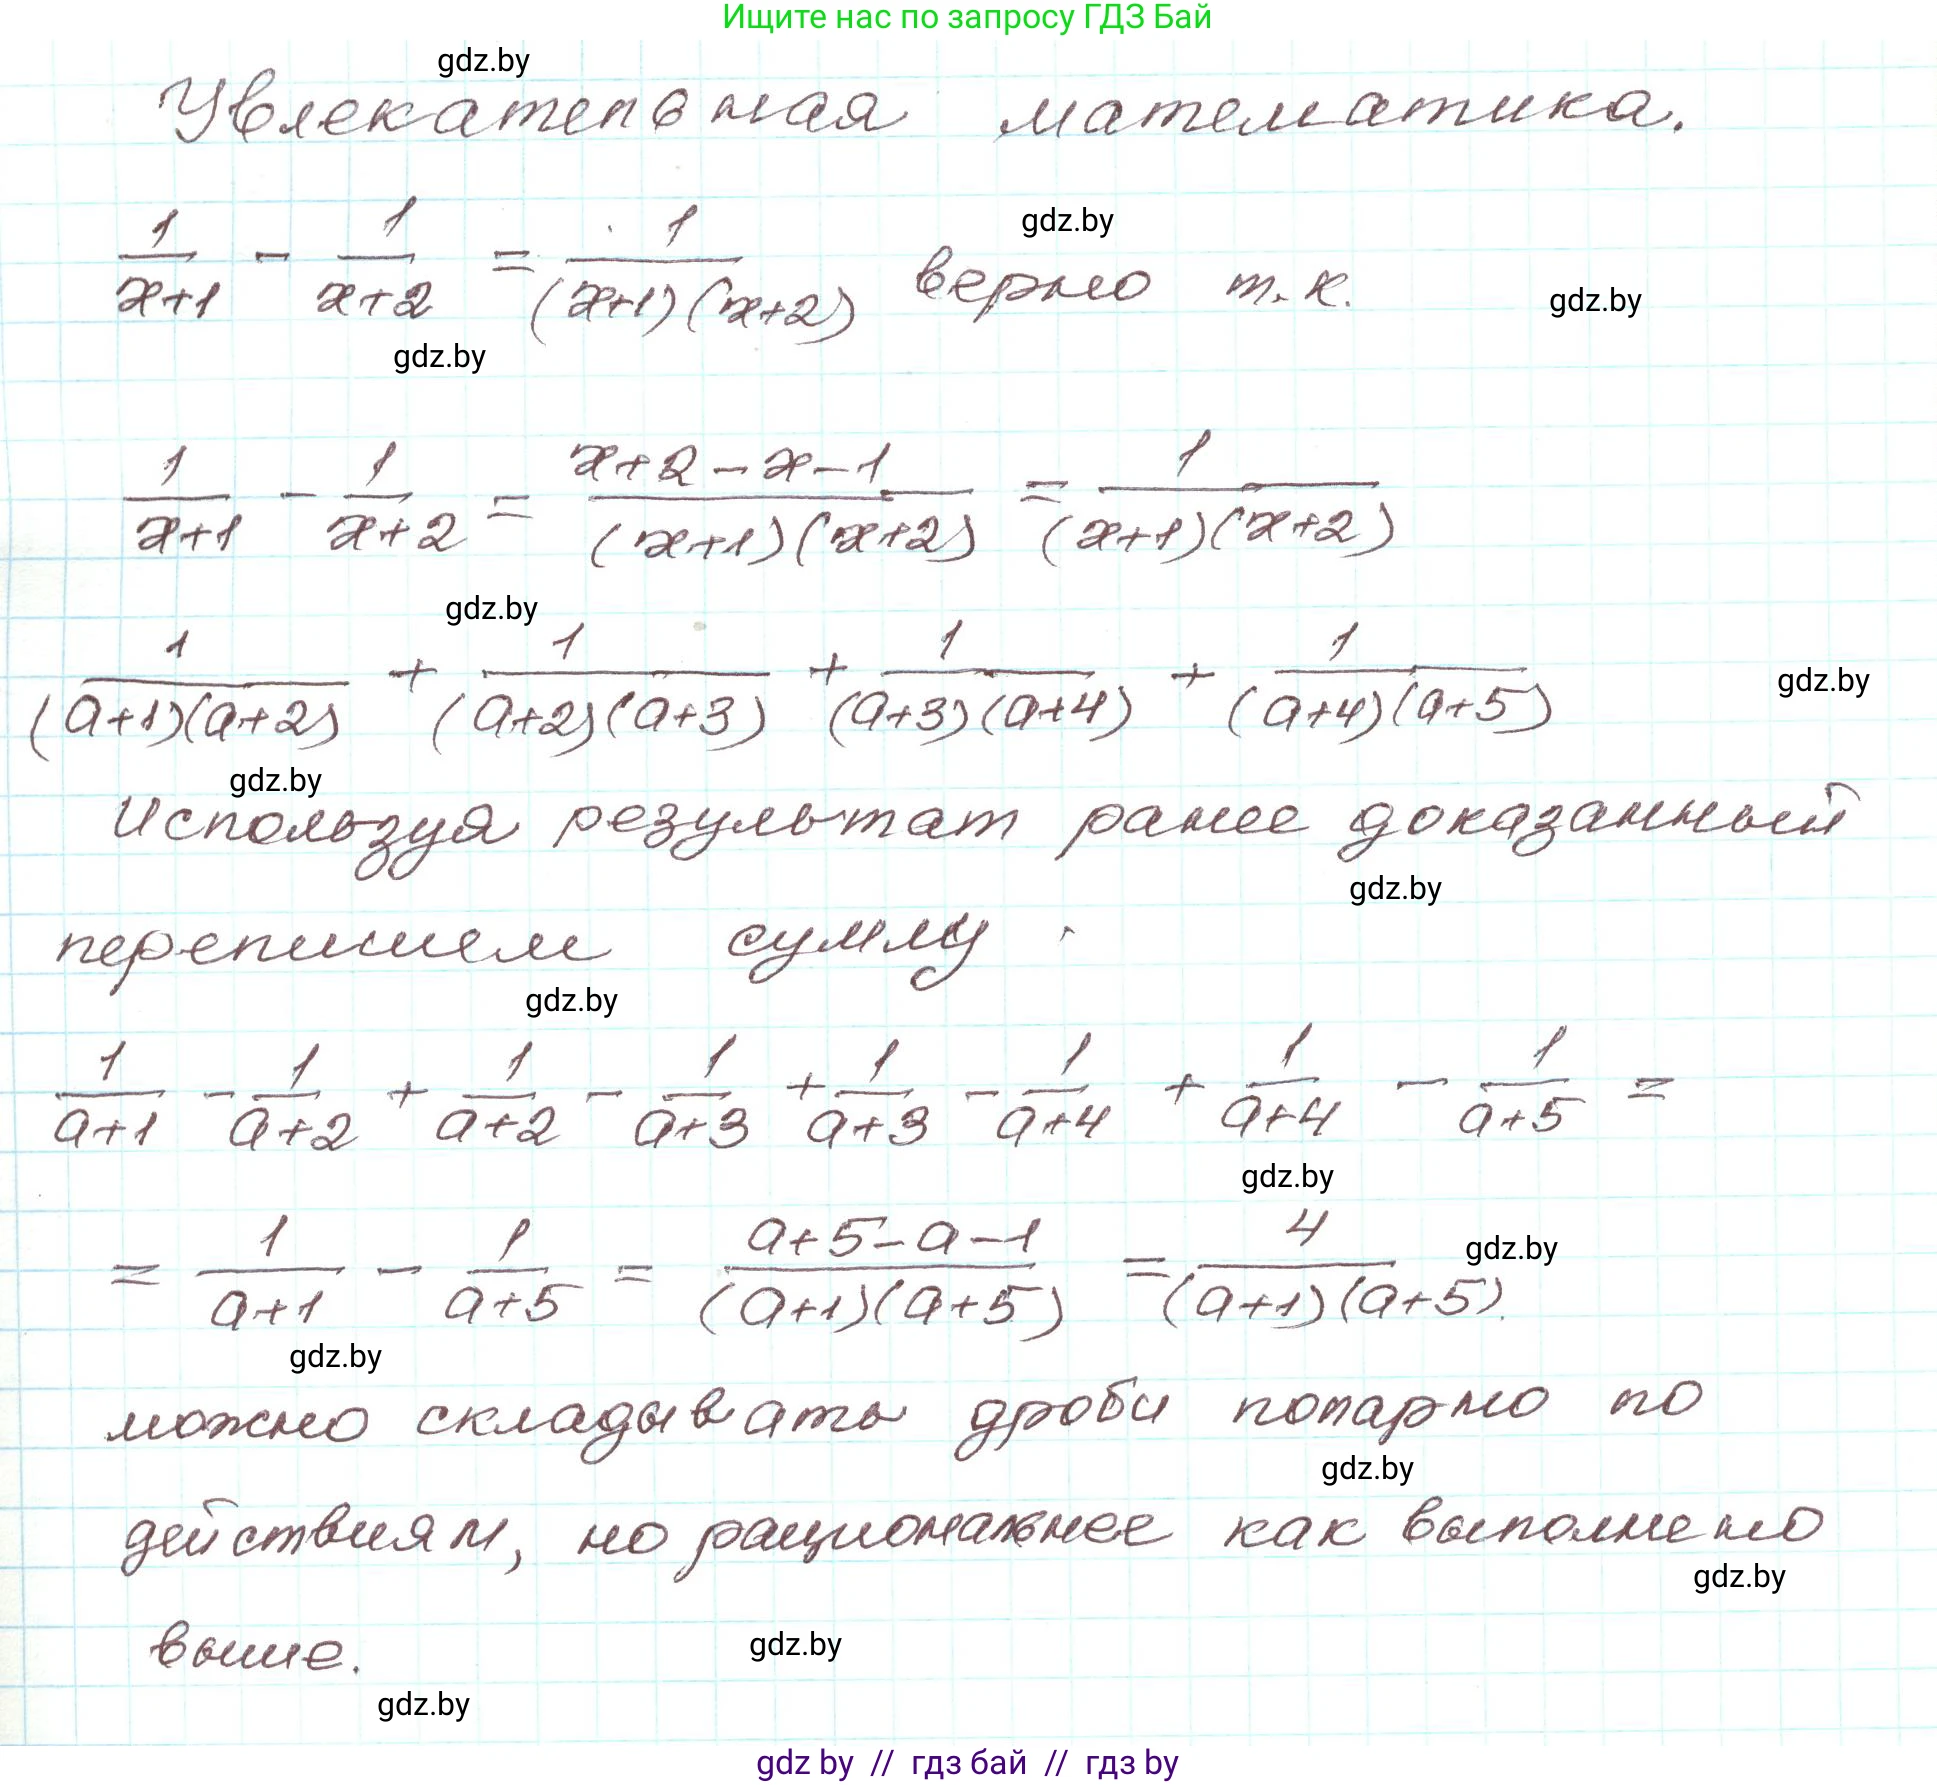 Ищите нас по запросу ГДЗ Бай
gdz.by
Увлекательная математика.
1/(x+1) - 1/(x+2) = 1/((x+1)(x+2)) верно т.к.
gdz.by
gdz.by
gdz.by
1/(x+1) - 1/(x+2) = (x+2-x-1)/((x+1)(x+2)) = 1/((x+1)(x+2))
gdz.by
1/((a+1)(a+2)) + 1/((a+2)(a+3)) + 1/((a+3)(a+4)) + 1/((a+4)(a+5))
gdz.by
gdz.by
Используя результат ранее доказанный
gdz.by
перепишем сумму
gdz.by
1/(a+1) - 1/(a+2) + 1/(a+2) - 1/(a+3) + 1/(a+3) - 1/(a+4) + 1/(a+4) - 1/(a+5) =
gdz.by
= 1/(a+1) - 1/(a+5) = (a+5-a-1)/((a+1)(a+5)) = 4/((a+1)(a+5)).
gdz.by
gdz.by
можно складывать дроби попарно по
gdz.by
действиям, но рациональнее как выполнено
gdz.by
выше.
gdz.by
gdz.by
gdz by // гдз бай // гдз by